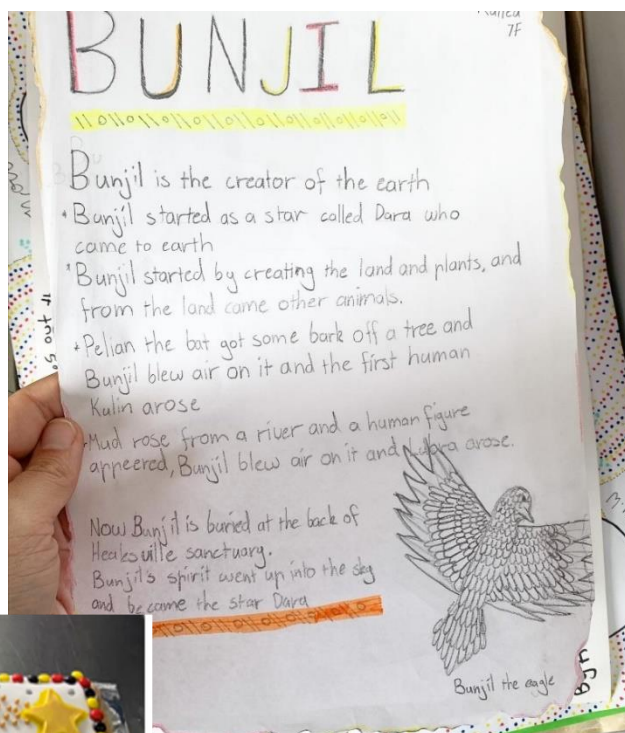 7F
BUNJIL
Bunjil is the creator of the earth
Bunjil started as a star called Dara who
came to earth
Bunjil started by creating the land and plants, and
from the land came other animals.
Pelian the bat got some bark off a tree and
Bunjil blew air on it and the first human
Kulin arose
Mud rose from a river and a human figure
appeered, Bunjil blew air on it and Nubra arose.
Now Bunjil is buried at the back of
Healesville sanctuary.
Bunjil's spirit went up into the sky
and became the star Dara
Bunjil the eagle
By